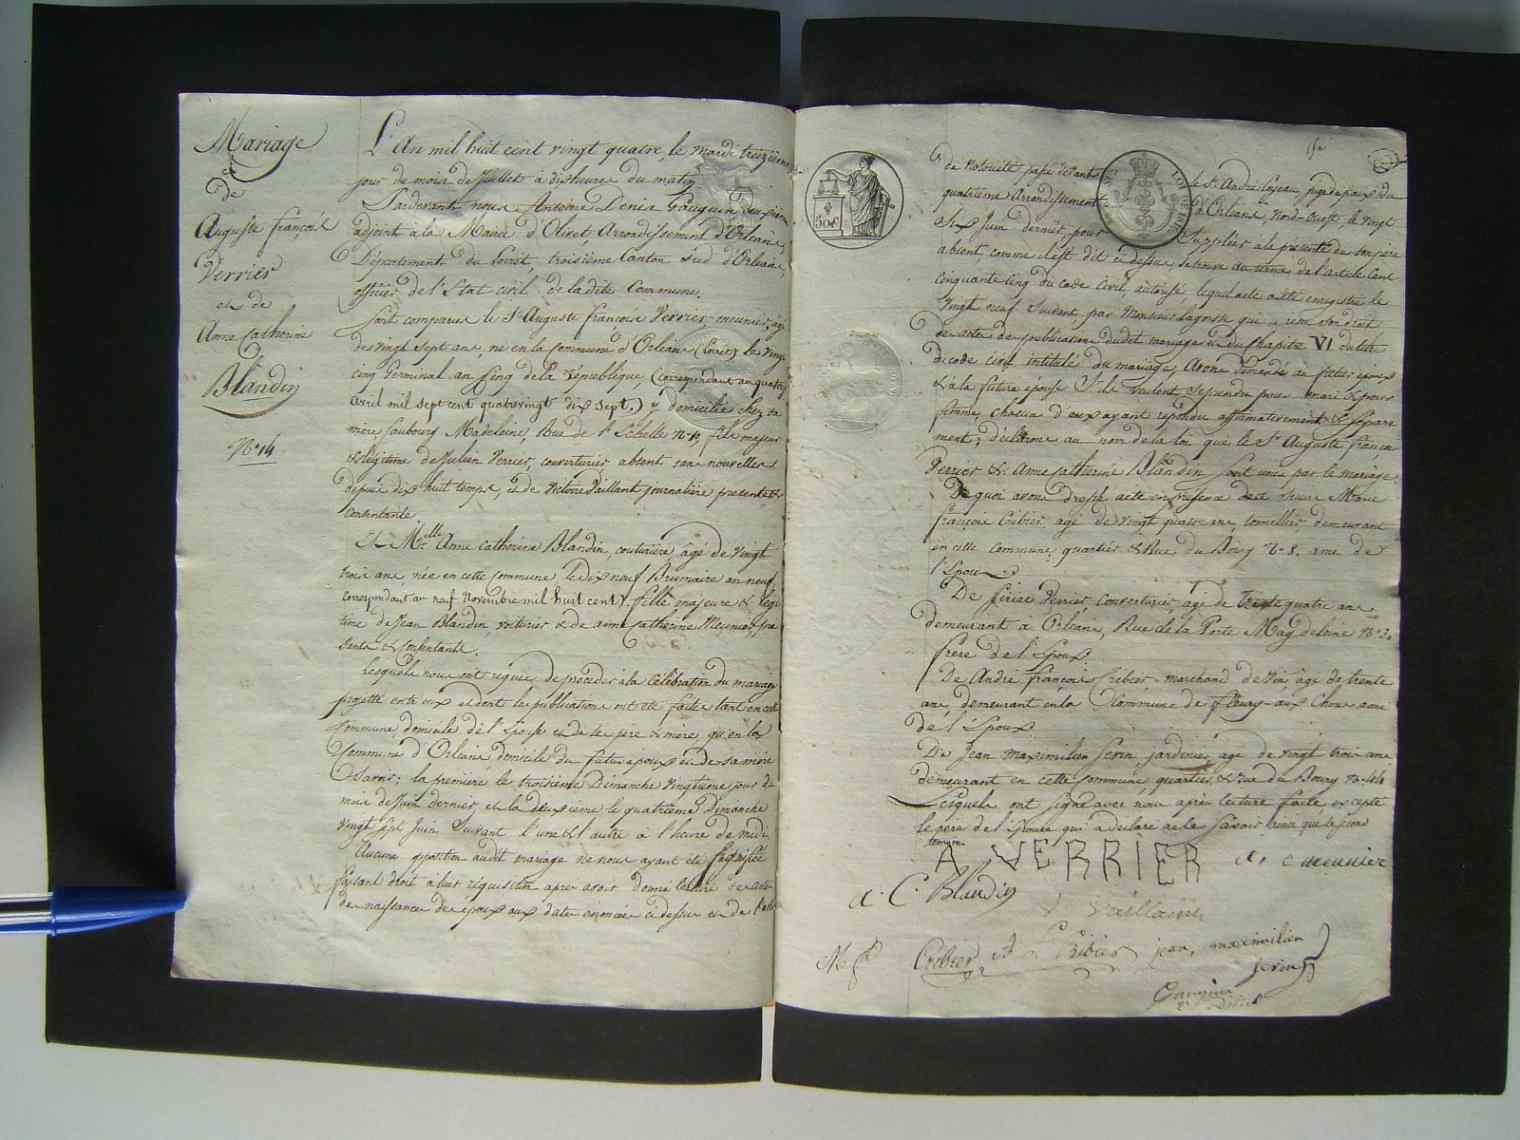 Mariage
de
Auguste françois
Verrier
et de
Anne Catherine
Blandin
N° 14
L'An mil huit cent vingt quatre, le mardi treizième
jour de mois de Juillet à dix heures du matin
Pardevant nous Antoine Denis Gauguin deuxième
adjoint à la Mairie d'Olivet, Arrondissement d'Orléans,
Département du Loiret, troisième Canton Sud d'Orléans,
officier de l'Etat civil de la dite Commune.
Sont comparus le Sr Auguste françois Verrier, meunier, agé
de vingt sept ans, né en la Commune d'Orléans (Loiret) le vingt
cinq Germinal an Cinq de la République, (correspondant au quatorze
avril mil sept cent quatrevingt dix sept,) y domicilié chez sa
mère, faubourg Madeleine, Rue de l'Echelle N° , fils majeur
& légitime de Julien Verrier, couverturier, absent sans nouvelles
depuis dix huit temps, et de Victoire Vaillant journalière présente &
consentante.
Et Melle Anne Catherine Blandin, couturière, âgé de vingt
trois ans, née en cette Commune le dix neuf Brumaire an neuf,
(correspondant au neuf Novembre mil huit cent). fille majeure & légi
time de Jean Blandin, voiturier & de anne Catherine Meunier, pré
sents & consentants.
Lesquels nous ont requis de procéder à la célébration du mariage
projetté entr'eux et dont les publications ont été faites tant en cette
Commune, domicile de l'Epouse et de ses père & mère, qu'en la
Commune d'Orléans domicile du futur époux et de sa mère
Savoir: la première le troisième Dimanche vingtième jour du
mois de Juin dernier, et la deuxième le quatrième Dimanche
vingt sept Juin Suivant l'une & l'autre à l'heure de midi
Aucune opposition audit mariage ne nous ayant été signifiée
faisant droit à leur réquisition après avoir donné lecture des actes
de naissance des époux aux dates énoncées ci dessus et de l'acte
de notoriété passé devant le Sr André Loyeau juge de paix du
quatrième Arrondissement d'Orléans, Nord-Ouest, le vingt
six Juin dernier, pour Suppléer à la présente du son père
absent, comme il est dit ci dessus, les termes de l'article Cent
cinquante cinq du code civil, autorise, lequel acte a été enregistré le
vingt neuf Suivant par Monsieur Lagosse qui a reçu son droit
des actes de publications du dit mariage et du Chapitre VI du titre
du code civil intitulé du mariage, Avons demandé au futur époux
& à la future épouse S'ils veulent se prendre pour mari & pour
femme, chacun d'eux ayant répondu affirmativement & séparé
ment; déclarons au nom de la loi que le Sr Auguste françois
Verrier & Anne Catherine Blandin sont unis par le mariage.
De quoi avons dressé acte en présence des Sieurs Marie
françois Cribier, agé de vingt quatre ans, tonnellier demeurant
en cette Commune, quartier & Rue du Bourg N° 8. ami de
l'Epouse
De Cerise Verrier, couverturier, agé de trente quatre ans
demeurant à Orléans, Rue de la Porte Magdeleine N° 30
frère de l'Epoux.
De André françois Cribier, marchand de vin agé de trente
ans, demeurant en la Commune de fleury-aux Choux ami
de l'Epoux
De Jean maximilien Serin jardinier, agé de vingt trois ans
demeurant en cette Commune, quartier, & rue du Bourg N°
Lesquels ont signé avec nous après lecture faite, excepté
le père de l'épouse qui a déclaré ne le Savoir
témoin
A VERRIER
A. C meunier
A. C. Blandin
V vaillant
M f
Cribier
Cribier
jean, maximilien
serin
Gauguin
50c